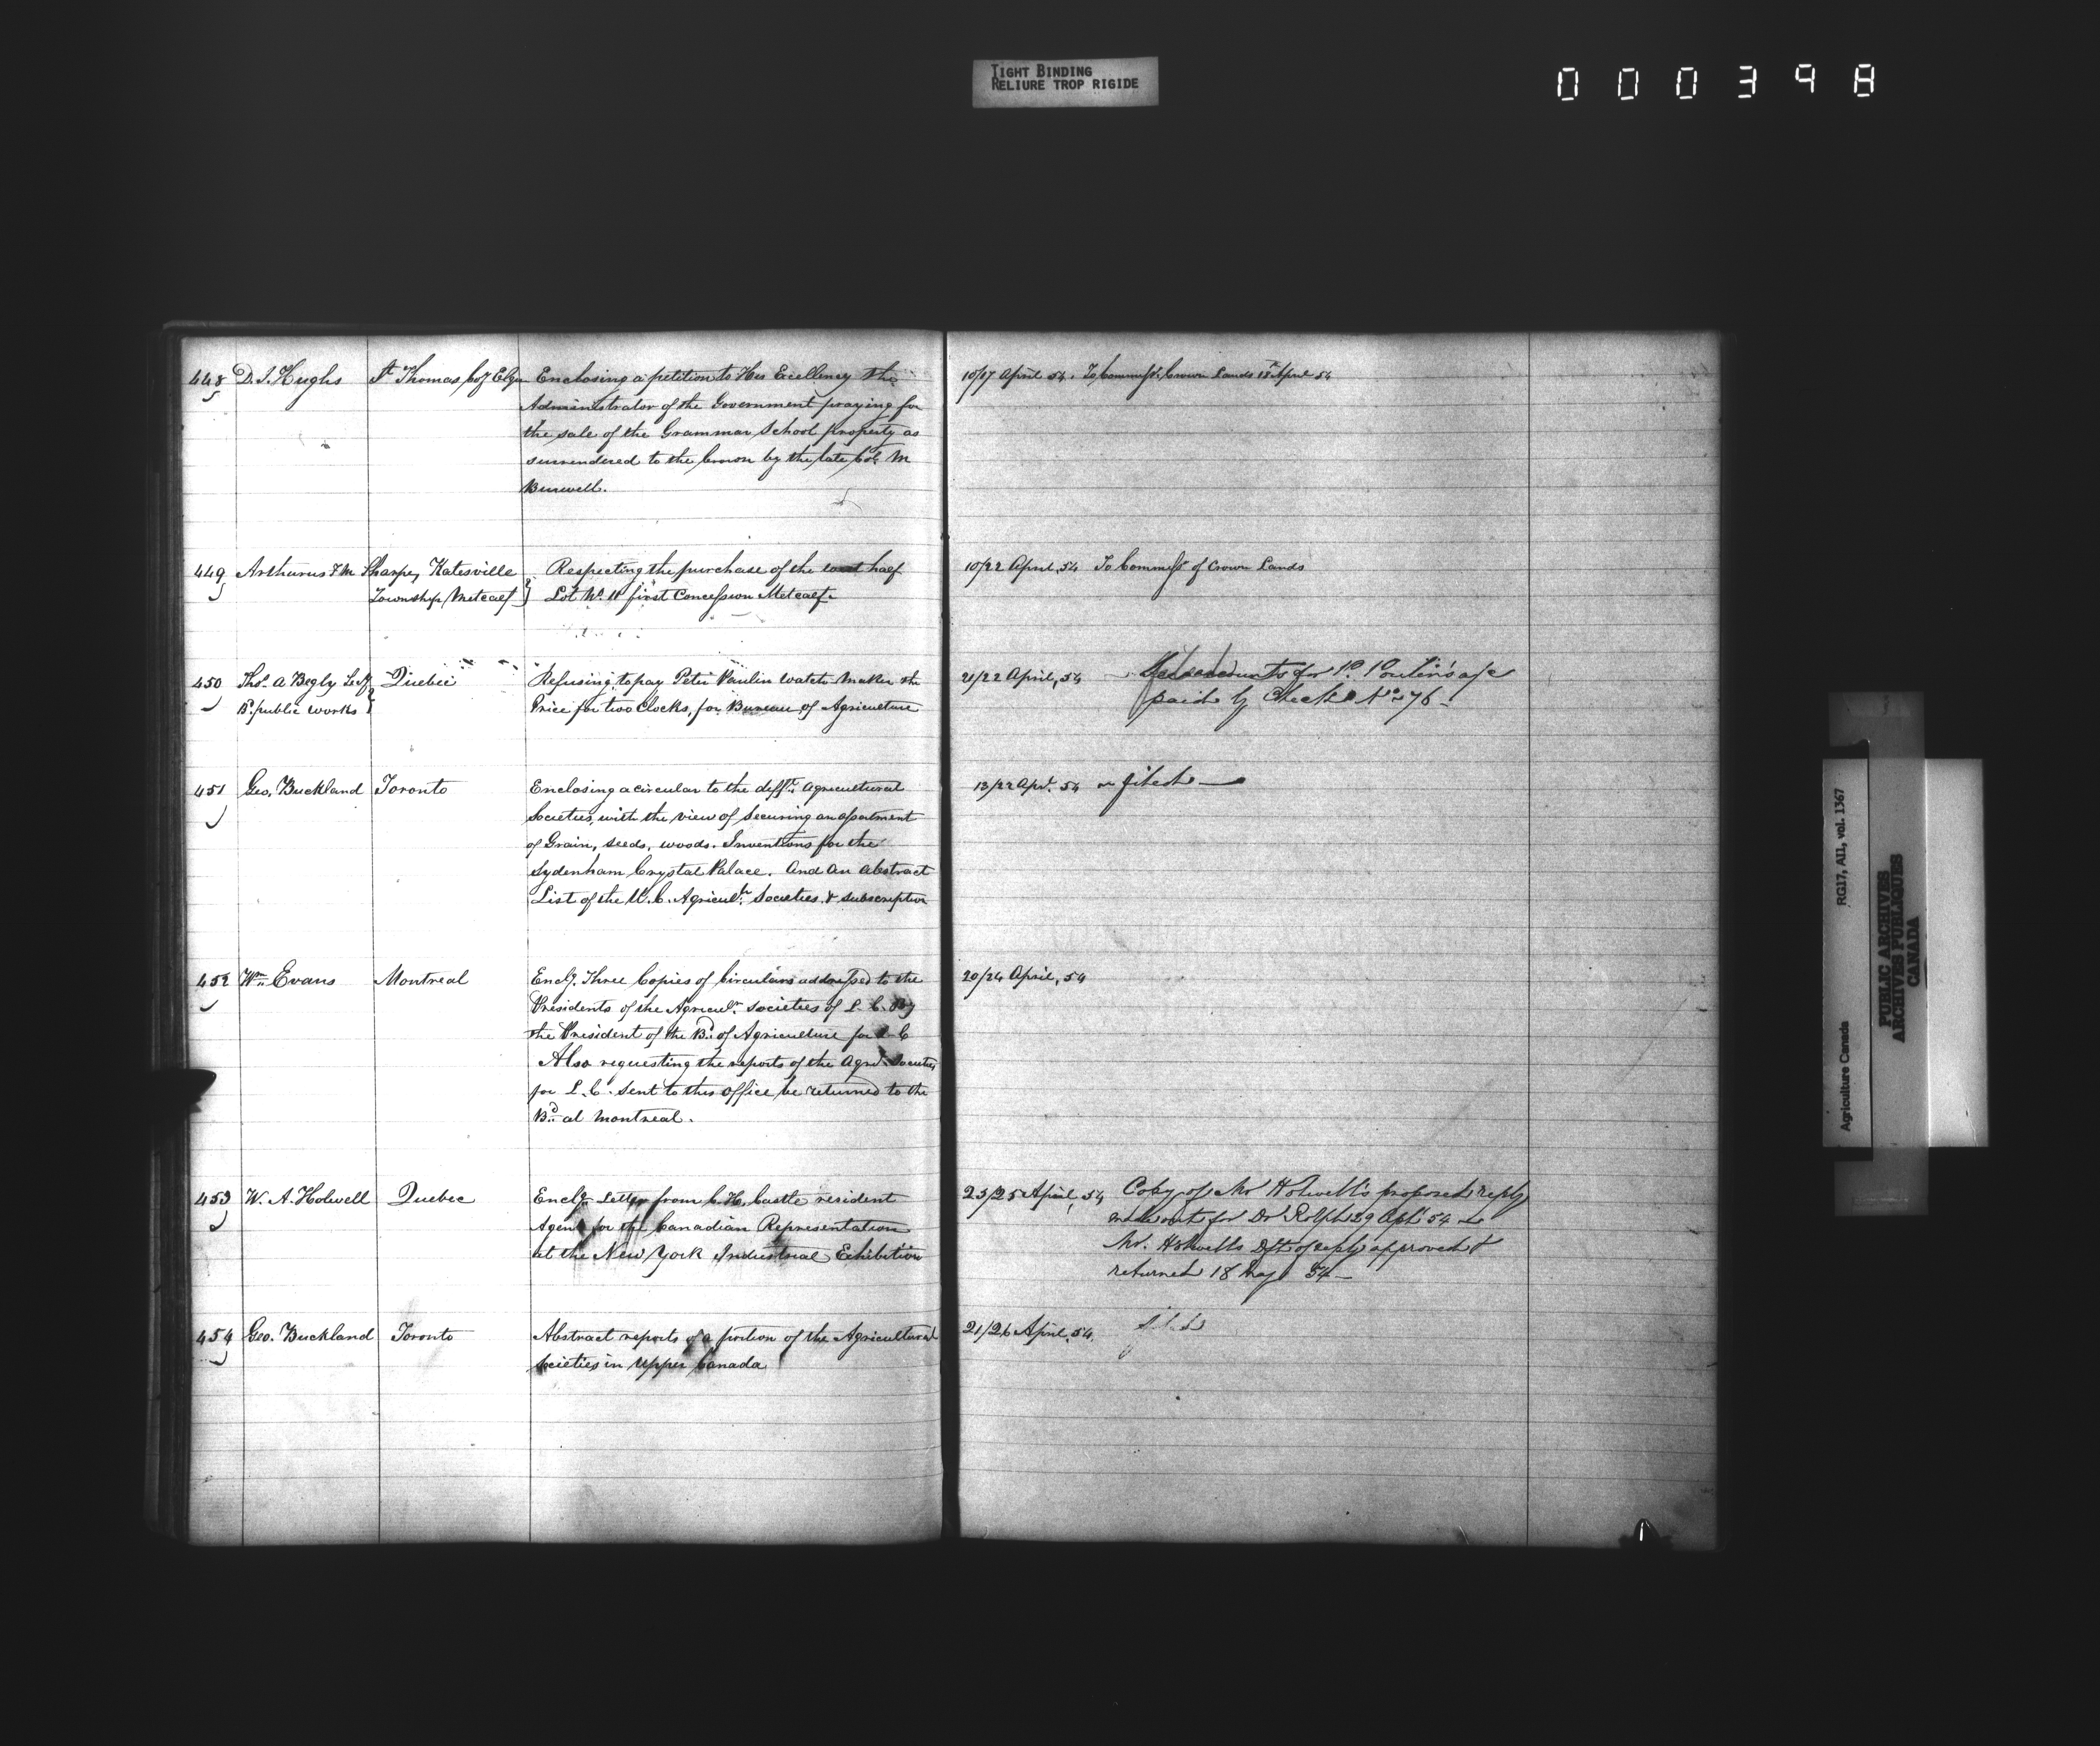 TIGHT BINDING
RELIURE TROP RIGIDE
000398
448 D. J. Hughs St Thomas, Co of Elgin Enclosing a petition to His Excellency the 10/17 April 54. To Commissr Crown Lands 18th April 54
Administrator of the Government praying for
the sale of the Grammar School property as
surrendered to the Crown by the late Col. M
Burwell.
449 Arthurus & M Sharpe, Katesville Respecting the purchase of the east half 10/22 April, 54 To Commissr of Crown Lands
Township Metcalf } Lot No. 11 first Concession Metcalf.
450 Thos. A Begly Secy Quebec Refusing to pay Peter Paulin watch maker the 21/22 April, 54 accounts for P. Poulin's a/c
Bd. public works } Price for two Clocks, for Bureau of Agriculture paid by Check No 276
451 Geo. Buckland Toronto Enclosing a circular to the difft. Agricultural 13/22 Apl. 54 filed —
Societies, with the view of securing an assortment
of Grain, seeds, woods. Inventions for the
Sydenham Crystal Palace. And an abstract
List of the U. C. Agriculr. Societies & subscription
452 Wm Evans Montreal Enclg. Three Copies of Circulars addressed to the 20/24 April, 54
Presidents of the Agriculr. societies of L. C. By
the President of the Bd. of Agriculture for L. C
Also requesting the reports of the Agrl. Societies
for L. C. sent to this office be returned to the
Bd. at Montreal.
453 W. A. Holwell Quebec Enclg. Letter from C. H. Castle resident 25/25 April, 54 Copy of Mr Holwell's proposed reply
Agent for the Canadian Representation made out for Dr Rolph 29 Apl 54 —
at the New York Industrial Exhibition Mr. Holwells Dft of reply approved &
returned 18 May 54 —
454 Geo. Buckland Toronto Abstract reports of a portion of the Agricultural 21/26 April, 54.
Societies in Upper Canada
Agriculture Canada RG17, AII, vol. 1367
PUBLIC ARCHIVES
ARCHIVES PUBLIQUES
CANADA